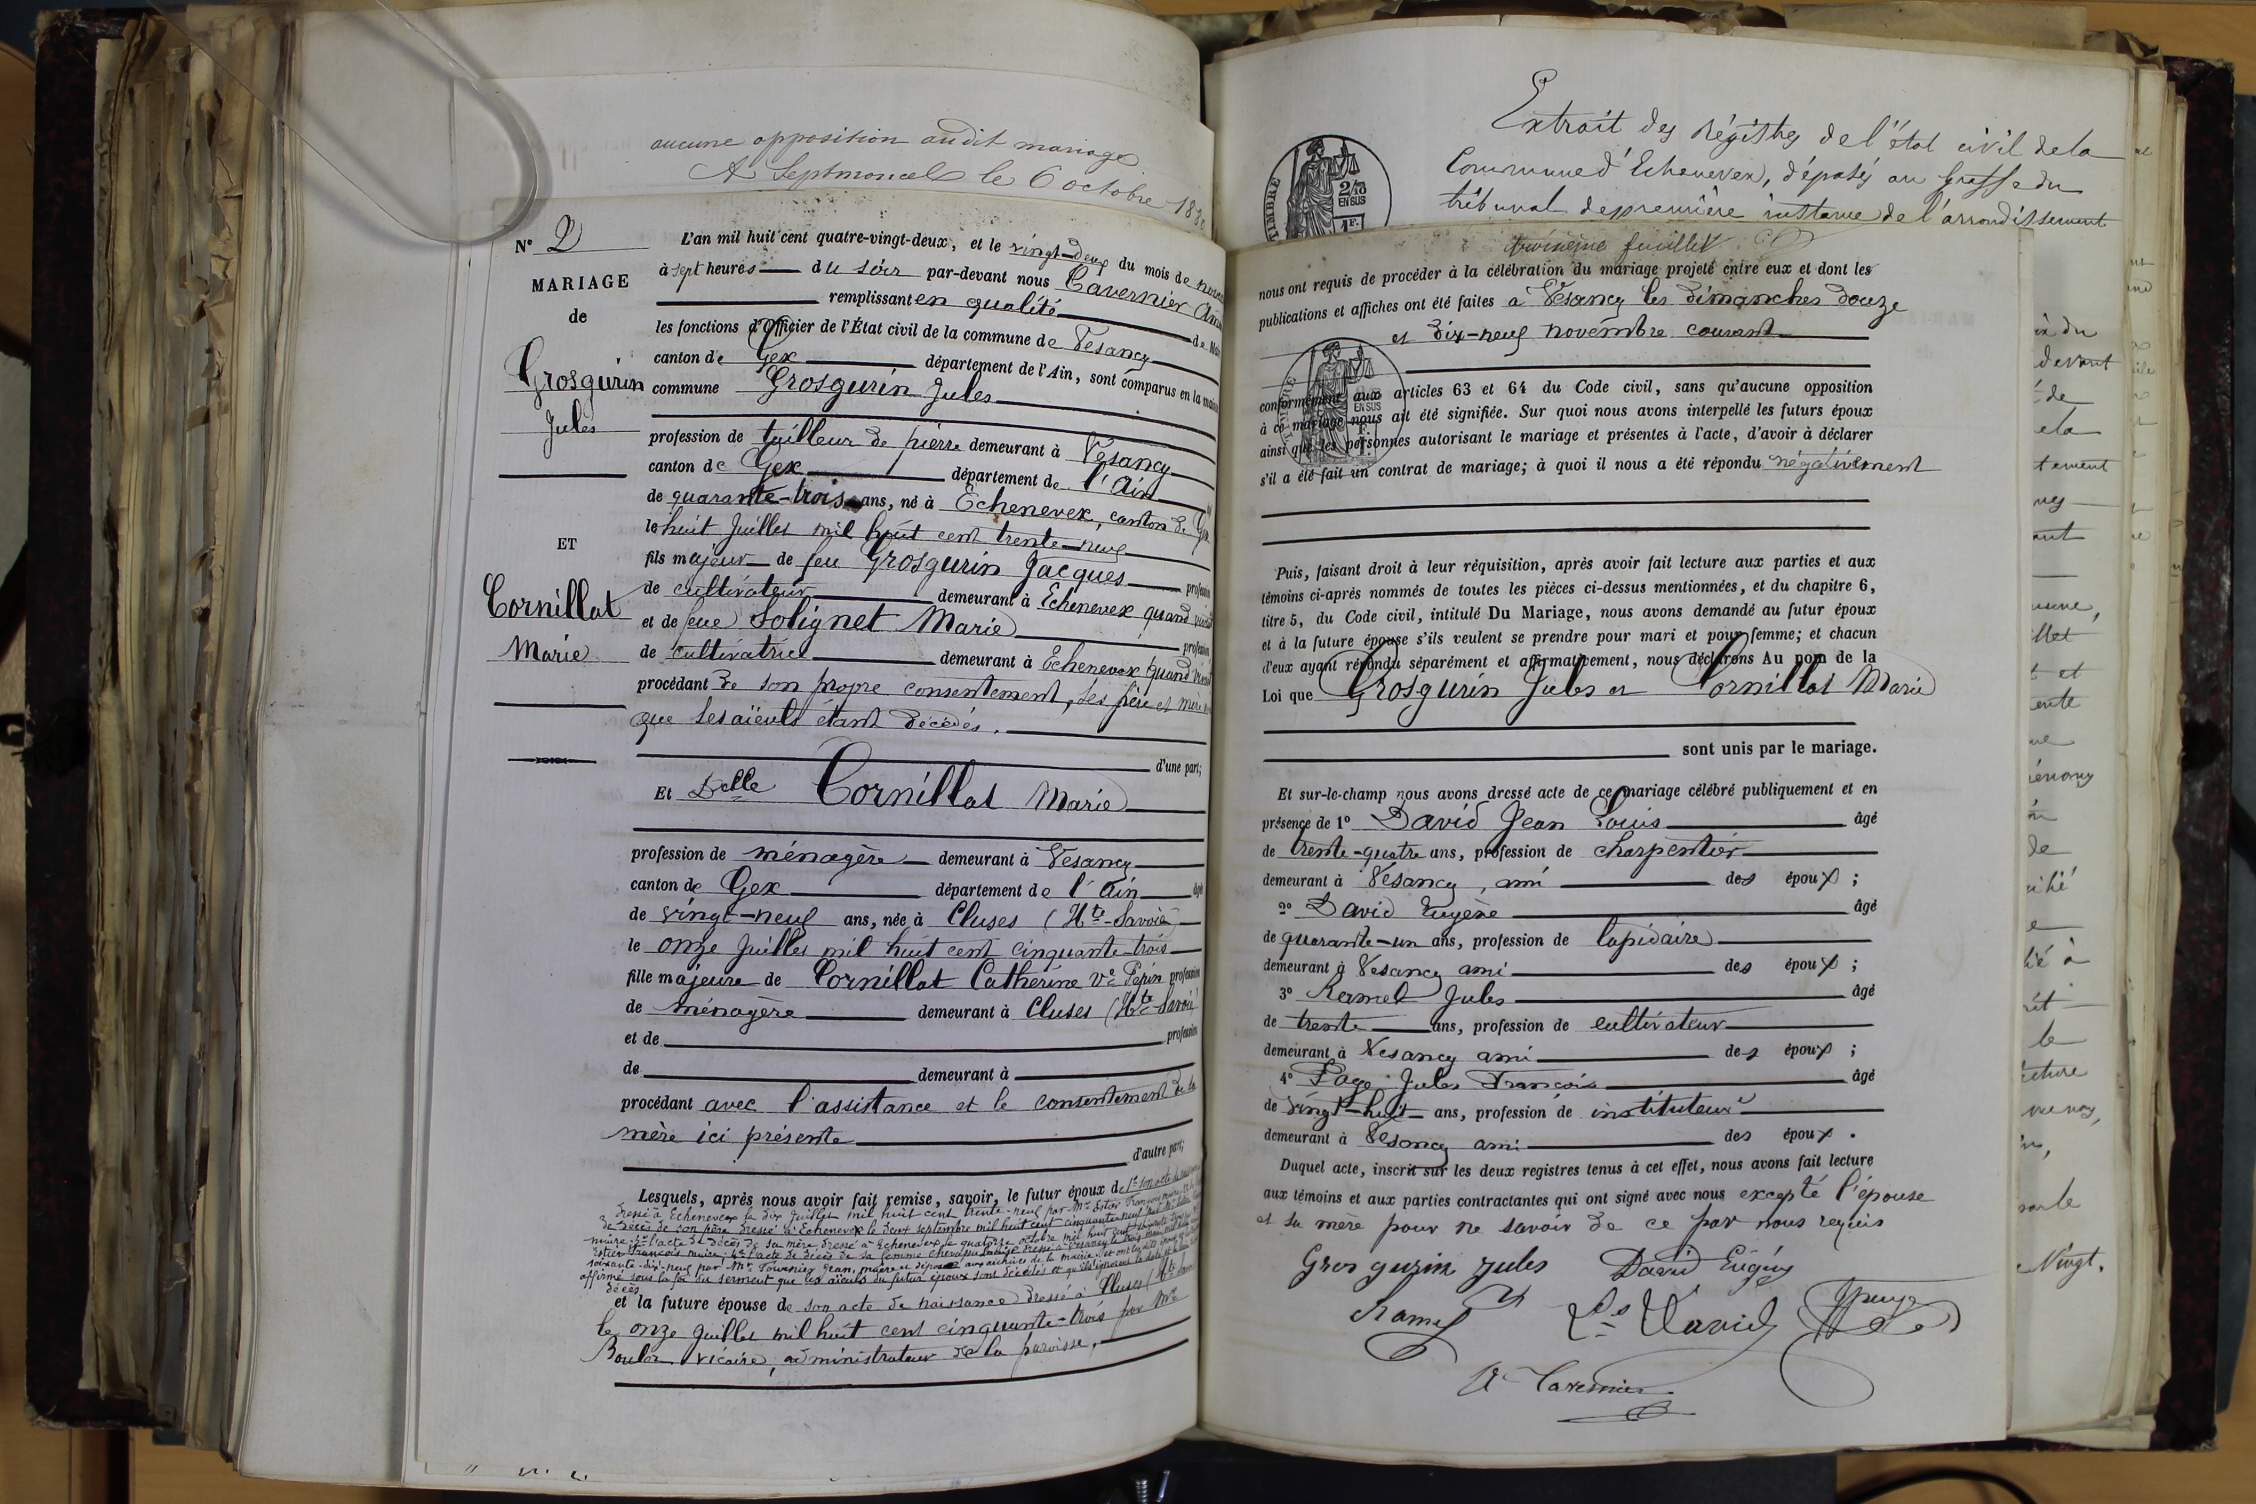 aucune opposition audit mariage
A Septmoncel le 6 octobre 18
N° 2
MARIAGE
de
Grosgurin
Jules
ET
Cornillat
Marie
L'an mil huit cent quatre-vingt-deux, et le vingt-deux du mois de
à sept heures du soir par-devant nous Tavernier
remplissant en qualité de
les fonctions d'Officier de l'État civil de la commune de Vesancy
canton de Gex département de l'Ain, sont comparus en la
commune Grosgurin Jules
profession de tailleur de pierre demeurant à Vesancy
canton de Gex département de l'Ain
de quarante-trois ans, né à Echenevex, canton de Gex
le huit Juillet mil huit cent trente-neuf
fils majeur de feu Grosgurin Jacques profession
de cultivateur demeurant à Echenevex quand vivait
et de feue Solignet Marie profession
de cultivatrice demeurant à Echenevex quand vivait
procédant de son propre consentement, ses père et mère
que ses aïeuls étant décédés.
d'une part;
Et Delle Cornillat Marie
profession de ménagère demeurant à Vesancy
canton de Gex département de l'Ain âgé
de vingt-neuf ans, née à Cluses (Hte-Savoie)
le onze Juillet mil huit cent cinquante-trois
fille majeure de Cornillat Catherine Ve Pépin profession
de ménagère demeurant à Cluses (Hte-Savoie)
et de profession
de demeurant à
procédant avec l'assistance et le consentement de sa
mère ici présente
d'autre part;
Lesquels, après nous avoir fait remise, savoir, le futur époux de 1° son acte de
dressé à Echenevex le dix Juillet mil huit cent trente-neuf par Mr
de décès de son père dressé à Echenevex le deux septembre mil huit cent cinquante-neuf
l'acte de décès de sa mère dressé à Echenevex le quatorze octobre mil huit cent
François maire; 4° l'acte de décès de sa femme dressé à Vesancy le trois
soixante-dix-neuf par Mr Tournier Jean, maire et déposé aux archives de la mairie; et ont
affirmé sous la foi du serment que les aïeuls du futur époux sont décédés et qu'ils ignorent
décès
et la future épouse de son acte de naissance dressé à Cluses (Hte
le onze Juillet mil huit cent cinquante-trois par Mr
vicaire, administrateur de la paroisse,
Extrait des Régistres de l'état civil de la
Commune d'Echenevex, déposés au Greffe du
tribunal de première instance de l'arrondissement
TIMBRE
2/10
EN SUS
1F.
troisième feuillet
nous ont requis de procéder à la célébration du mariage projeté entre eux et dont les
publications et affiches ont été faites à Vesancy les dimanches douze
et dix-neuf novembre courant
conformément aux articles 63 et 64 du Code civil, sans qu'aucune opposition
à ce mariage nous ait été signifiée. Sur quoi nous avons interpellé les futurs époux
ainsi que les personnes autorisant le mariage et présentes à l'acte, d'avoir à déclarer
s'il a été fait un contrat de mariage; à quoi il nous a été répondu négativement
Puis, faisant droit à leur réquisition, après avoir fait lecture aux parties et aux
témoins ci-après nommés de toutes les pièces ci-dessus mentionnées, et du chapitre 6,
titre 5, du Code civil, intitulé Du Mariage, nous avons demandé au futur époux
et à la future épouse s'ils veulent se prendre pour mari et pour femme; et chacun
d'eux ayant répondu séparément et affirmativement, nous déclarons Au nom de la
Loi que Grosgurin Jules et Cornillat Marie
sont unis par le mariage.
Et sur-le-champ nous avons dressé acte de ce mariage célébré publiquement et en
présence de 1° David Jean Louis âgé
de trente-quatre ans, profession de charpentier
demeurant à Vesancy, ami des époux;
2° David Eugène âgé
de quarante-un ans, profession de lapidaire
demeurant à Vesancy ami des époux;
3° Ramel Jules âgé
de trente ans, profession de cultivateur
demeurant à Vesancy ami des époux;
4° Page Jules François âgé
de vingt-huit ans, profession de instituteur
demeurant à Vesancy ami des époux.
Duquel acte, inscrit sur les deux registres tenus à cet effet, nous avons fait lecture
aux témoins et aux parties contractantes qui ont signé avec nous excepté l'épouse
et sa mère pour ne savoir de ce par nous requis
Grosgurin Jules David Eugène
Ramel Ls David JPage
A Tavernier